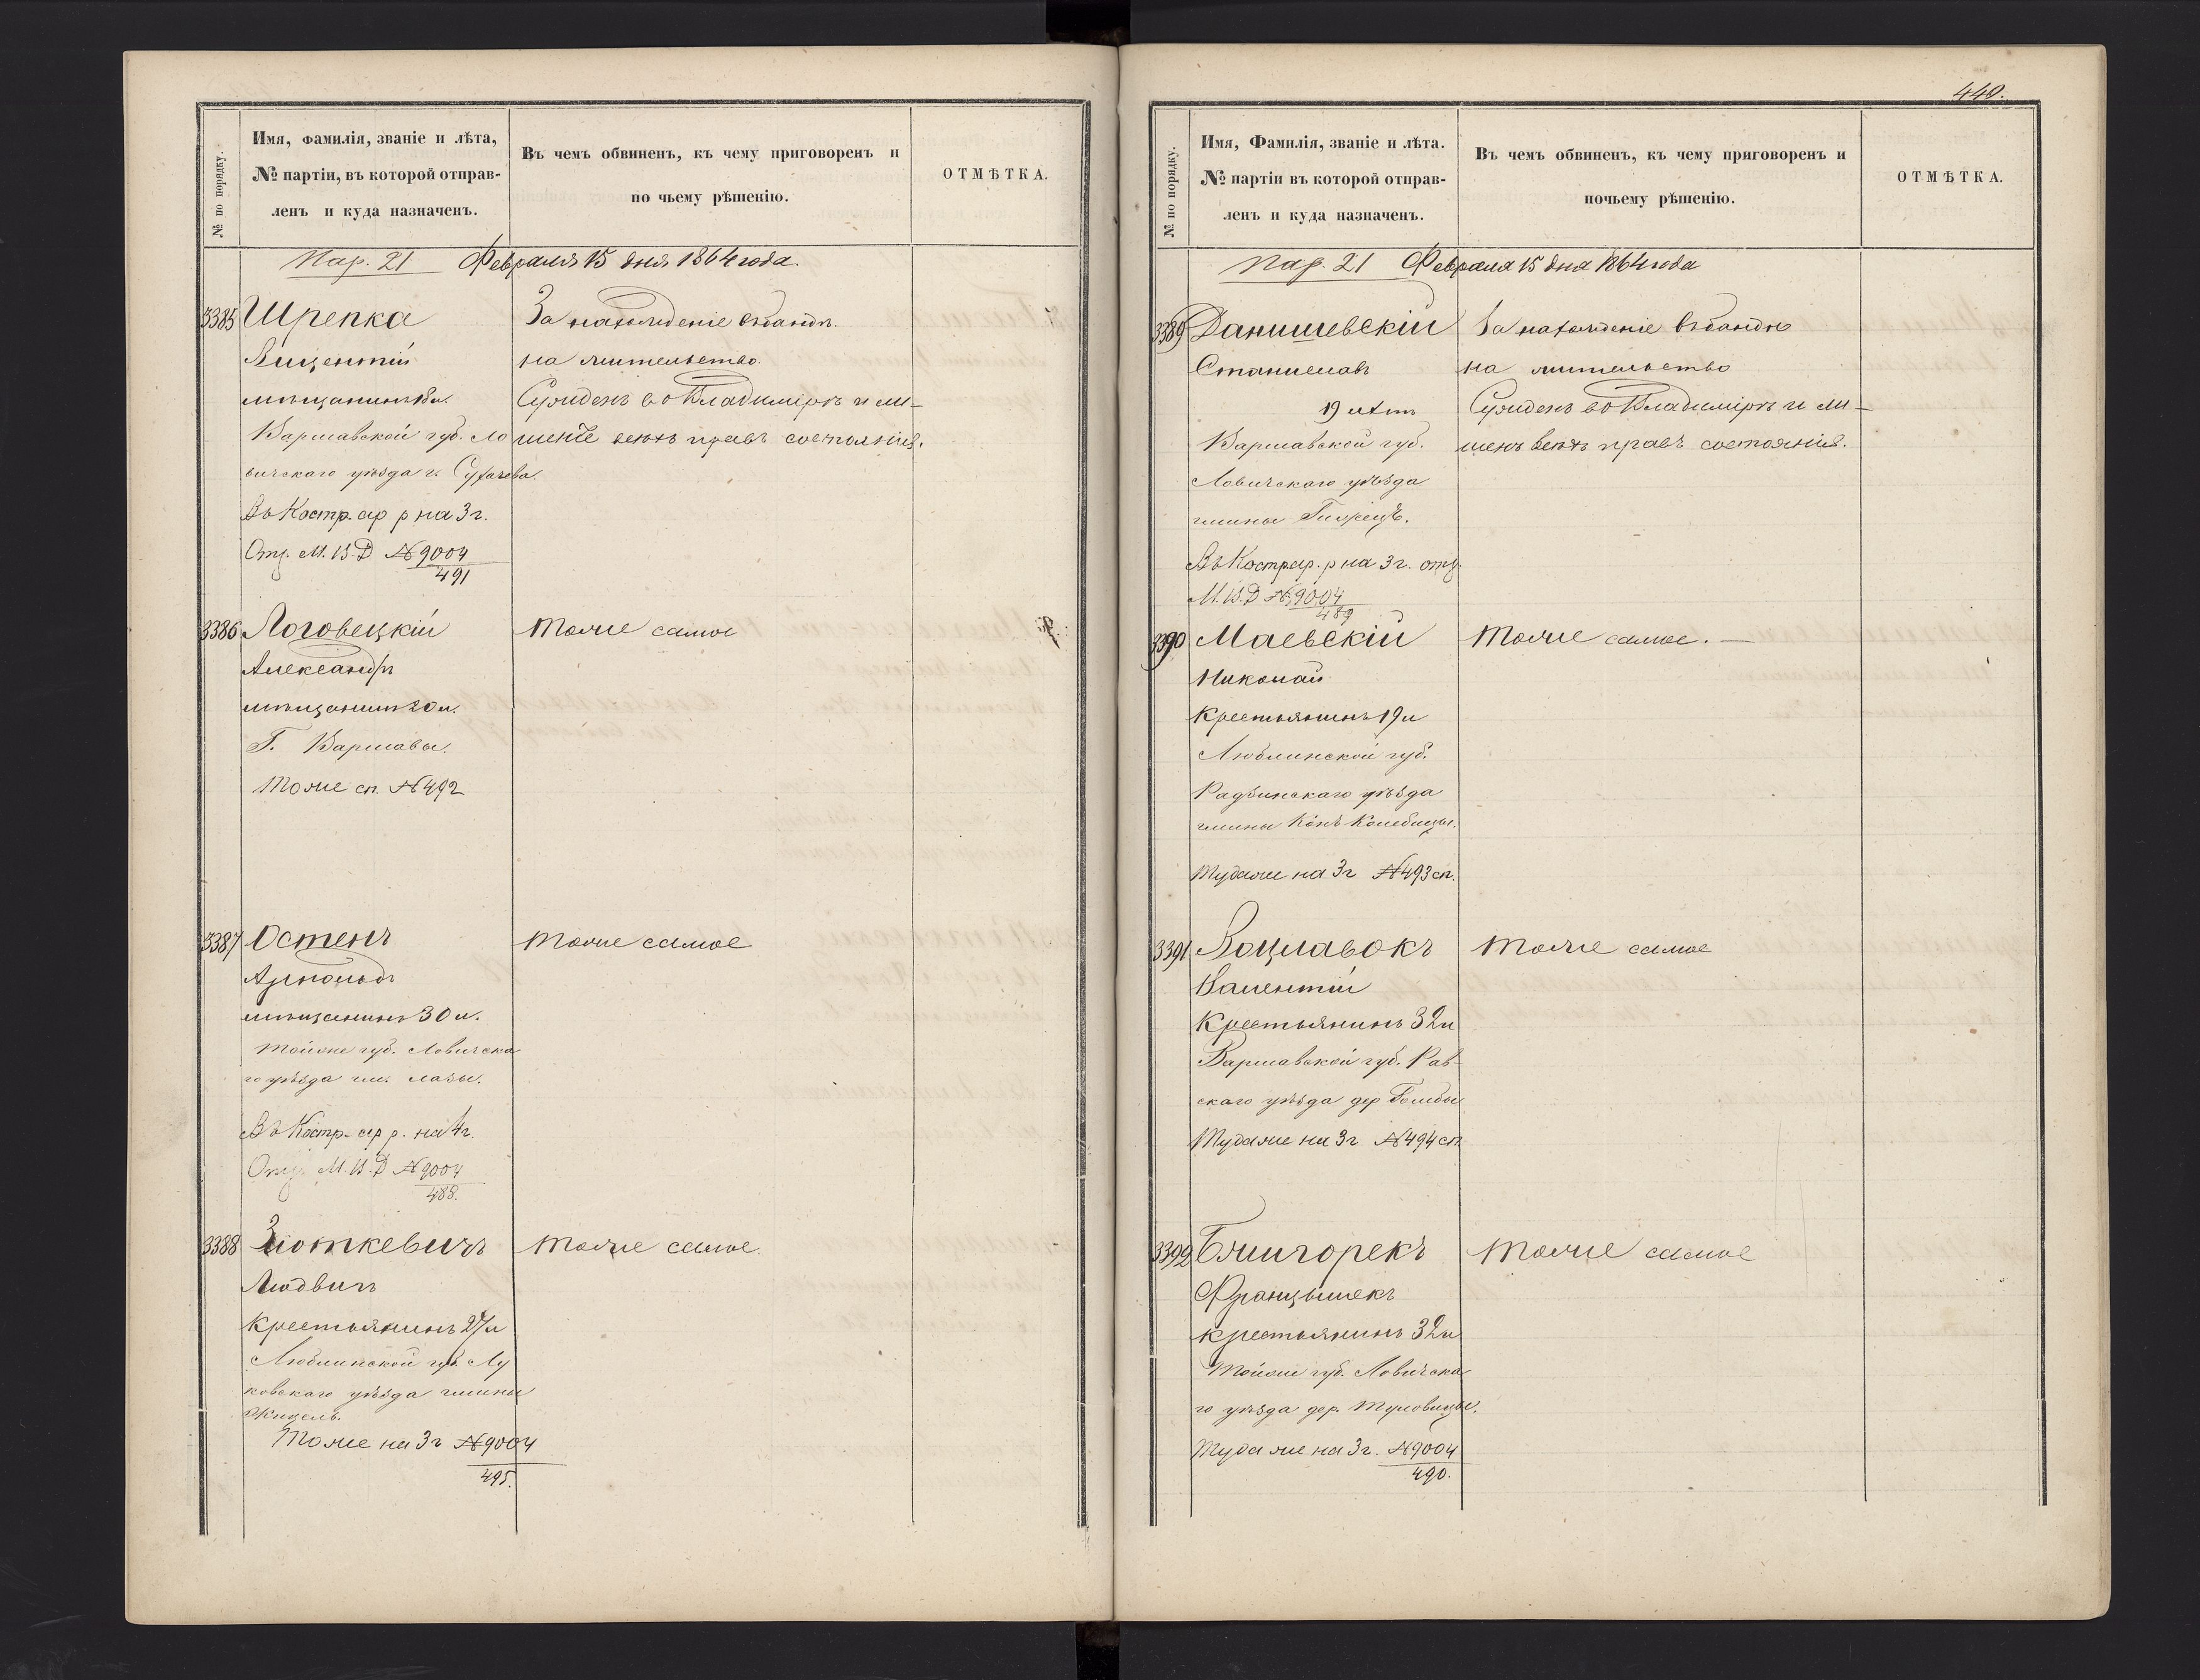 № по порядку.
Имя, фамилія, званіе и лѣта,
№ партіи, въ которой отправ-
ленъ и куда назначенъ.
Въ чемъ обвиненъ, къ чему приговоренъ и
по чьему рѣшенію.
ОТМѢТКА.
Пар. 21 Февраля 15 дня 1864 года.
3385 Шрепка
Вицентій
мѣщанинъ 18 л.
Варшавской губ. Ло
вичскаго уѣзда г. Сухачева.
Въ Костр. ар р на 3 г.
Отц. М.В.Д №9004
491
За нахожденіе въ бандѣ.
на жительство.
Сужденъ во Владимірѣ и ли-
шенъ всѣхъ правъ состоянія.
3386 Логовецкій
Александръ
мѣщанинъ 20 л.
Г. Варшавы.
Тоже сп. №492
Тоже самое
3387 Остенъ
Арнольдъ
мѣщанинъ 30 л.
Тойже губ. Ловичска
го уѣзда гм. Лазы.
Въ Костр. ар р. на 4 г.
Отц. М.В.Д №9004
488.
Тоже самое
3388 Зюткевичъ
Людвигъ
Крестьянинъ 27 л
Люблинской губ. Лу
ковскаго уѣзда гмины
Тоже на 3 г №9004
495.
Тоже самое.
440.
№ по порядку.
Имя, Фамилія, званіе и лѣта.
№ партіи въ которой отправ-
ленъ и куда назначенъ.
Въ чемъ обвиненъ, къ чему приговоренъ и
почьему рѣшенію.
ОТМѢТКА.
Пар. 21 Февраля 15 дня 1864 года
3389 Данишевскій
Станиславъ
19 лѣтъ
Варшавской губ.
Ловичскаго уѣзда
гмины
Въ Костр ар. р на 3 г. отц.
М.В.Д №9004
489
За нахожденіе въ бандѣ
на жительство
Сужденъ во Владимірѣ и ли-
шенъ всѣхъ правъ состоянія.
3390 Маевскій
Николай
Крестьянинъ 19 л
Люблинской губ.
Радзинскаго уѣзда
гмины
Тудаже на 3 г №493 сп.
Тоже самое. —
3391 Вацлавокъ
Валентій
Крестьянинъ 32 л
Варшавской губ. Рав-
скаго уѣзда дер Гомбы
Тудаже на 3 г №494 сп
Тоже самое
3392 Бжигорекъ
Францышекъ
крестьянинъ 32 л
Тойже губ. Ловичска
го уѣзда дер. Туловицы.
Туда же на 3 г. №9004
490.
Тоже самое